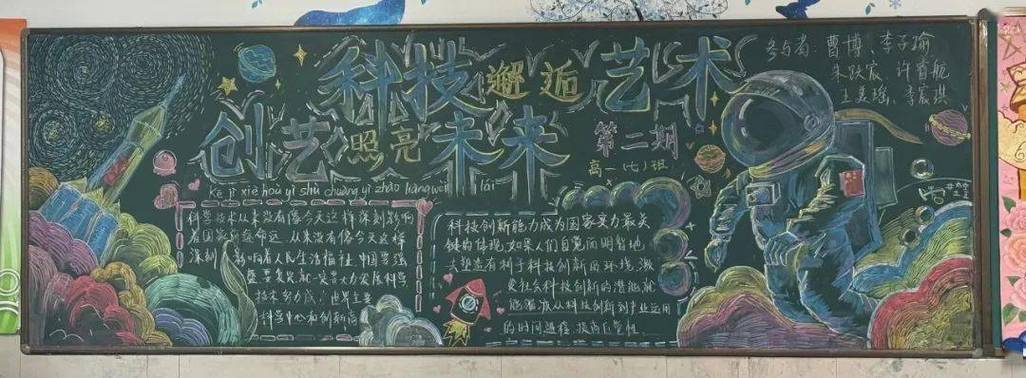 科技邂逅艺术
创艺照亮未来
第二期
高一(七)班
参与者:曹博、李子瑜
朱跃宸、许睿舵
王美瑶、李宸琪
kē jì xiè hòu yì shù chuàng yì zhào liàng wèi lái
科学技术从来没有像今天这样深刻影响
着国家前途命运,从来没有像今天这样
深刻影响着人民生活福祉.中国要强
盛要复兴就一定要大力发展科学
技术努力成为世界主要
科学中心和创新高
科技创新能力成为国家实力最关
键的体现.如果人们自觉而明智地
去塑造有利于科技创新的环境,激
发社会科技创新的潜能就
能缩减从科技创新到产业运用
的时间进程,提高